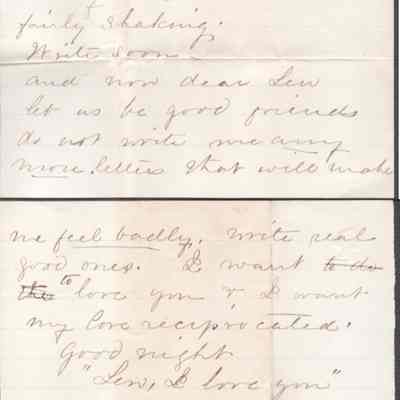 fairly shaking.
Write soon –
and now dear Len
let us be good friends
do not write me any
more letters that will make
me feel badly. Write real
good ones. I want to do
the to love you & I want
my love reciprocated.
Good night
"Len, I love you"